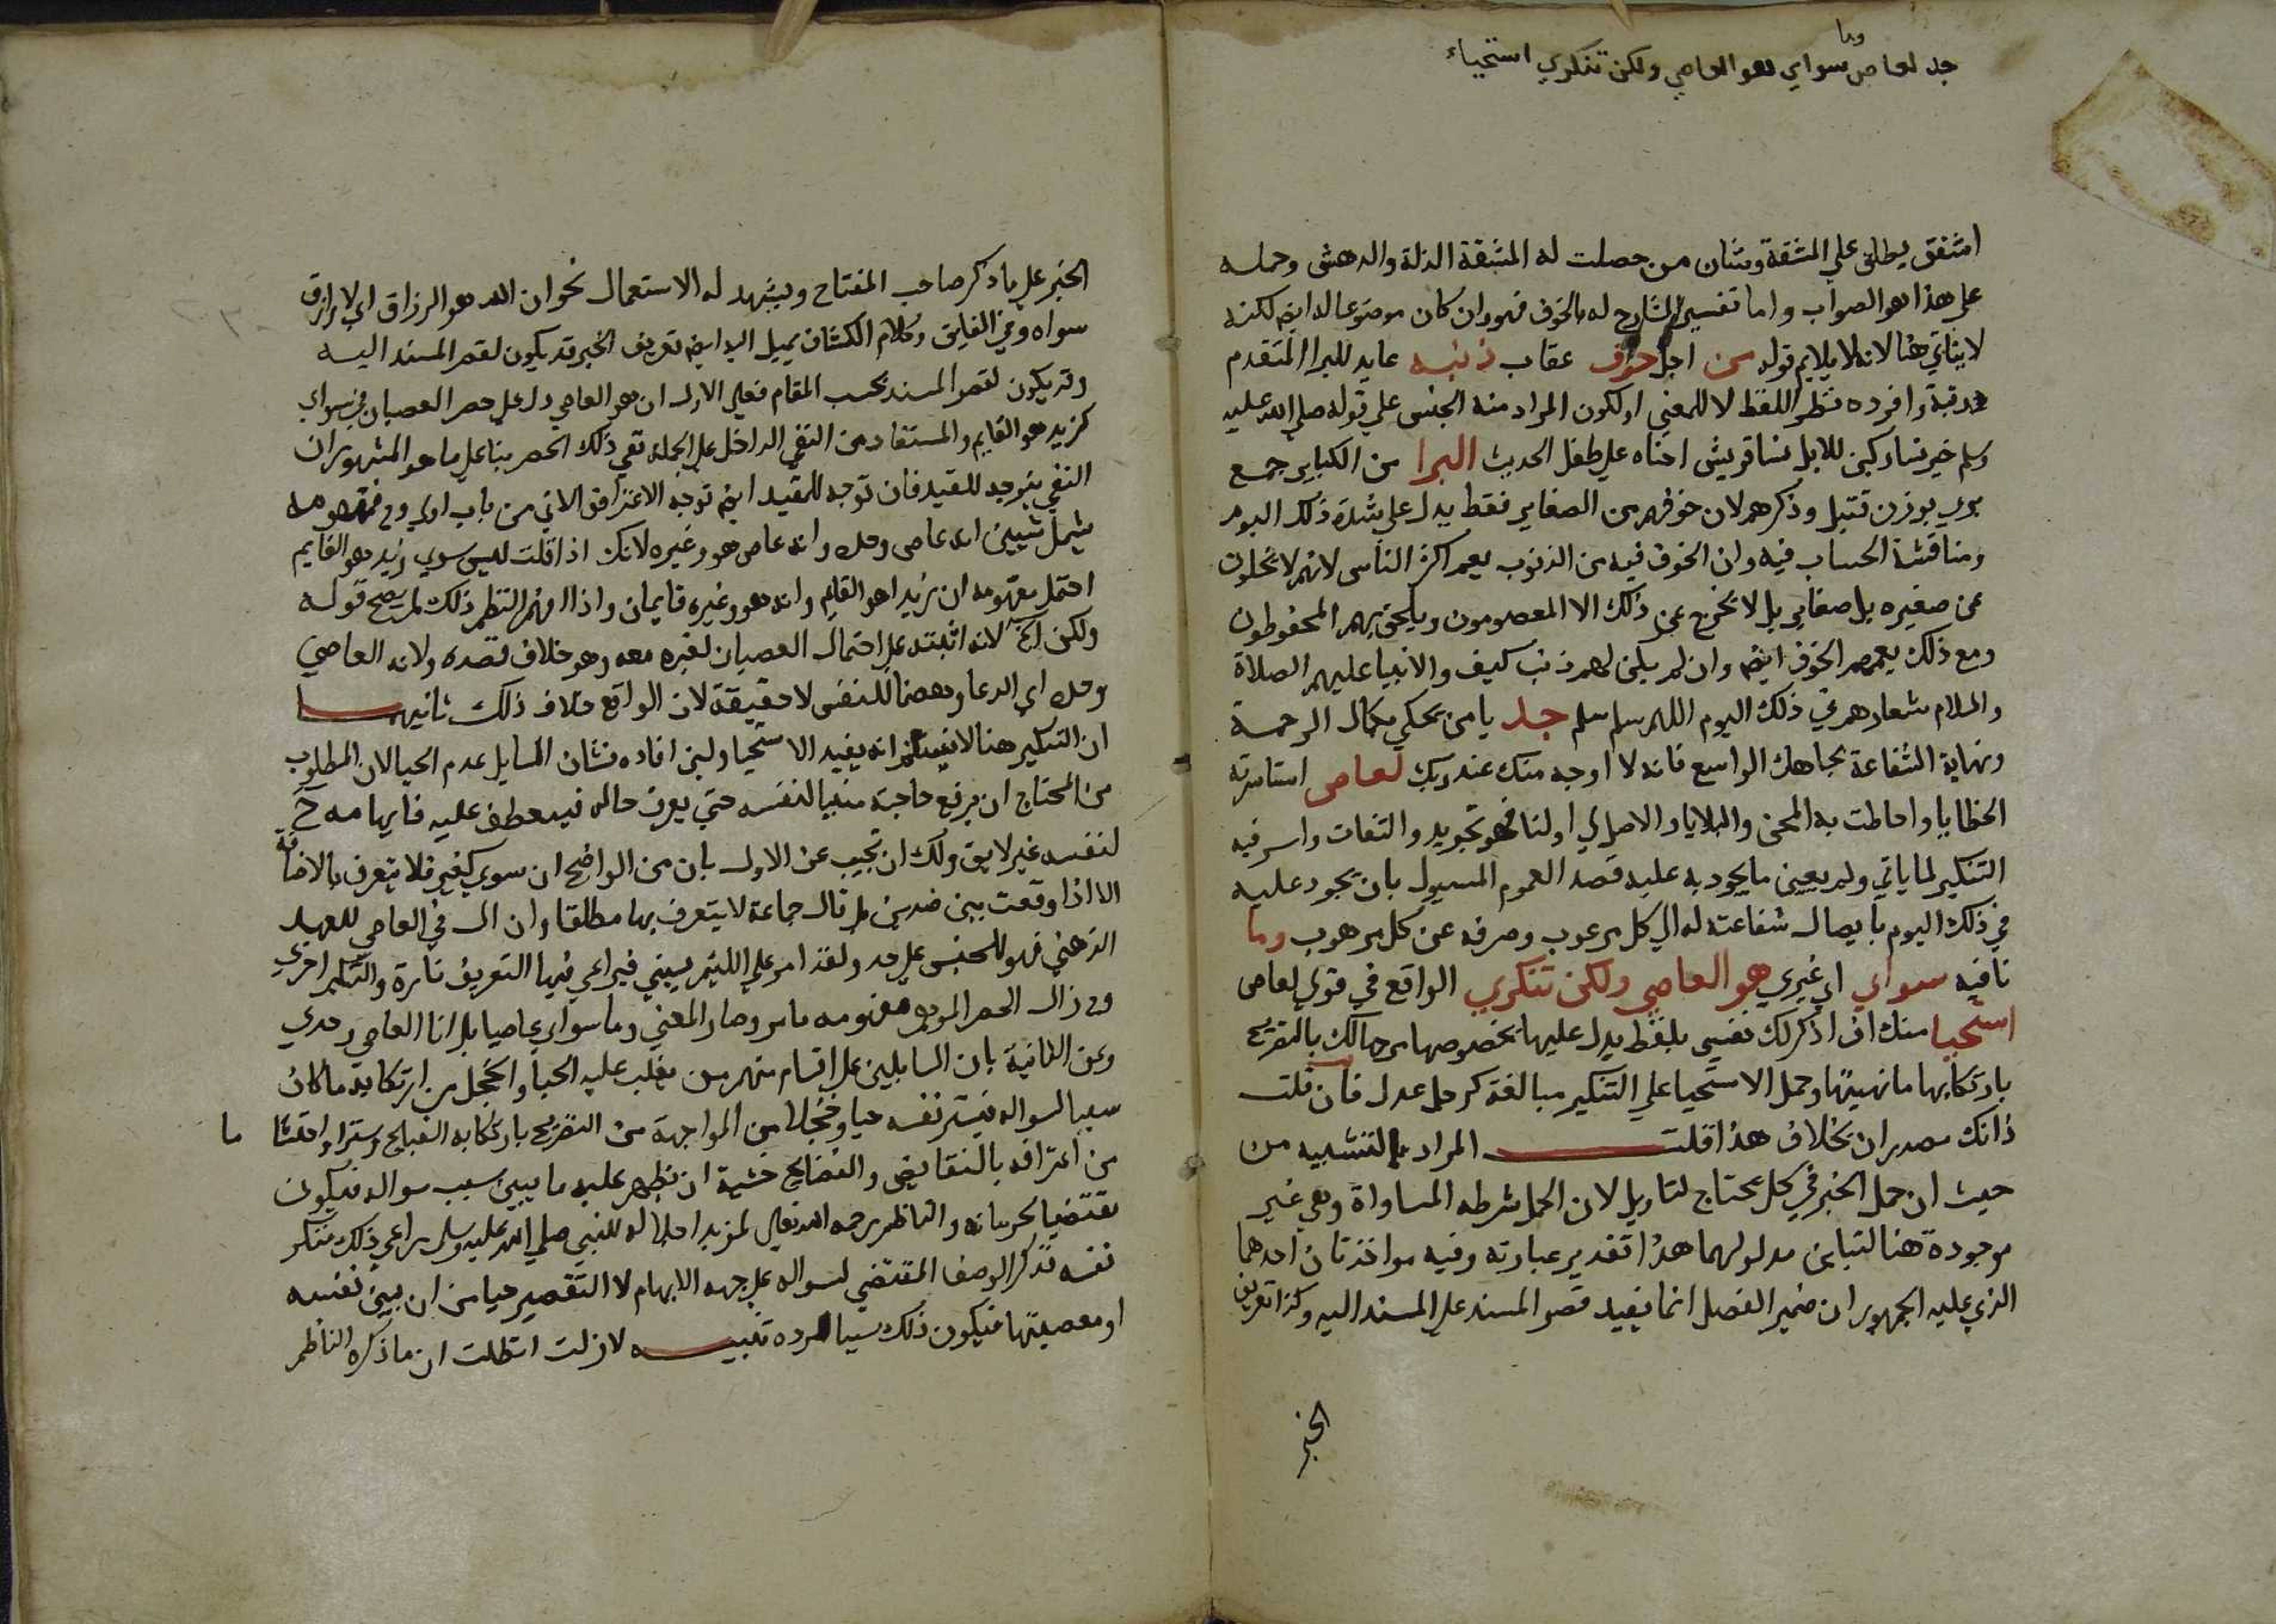 وما
جد لعاص سواي هو العاصي ولكن تنكري استحياء
امتنفق يطلق على المشقة وشان من حصلت له المشقة الذلة والدهش وحمله
على هذا هو الصواب واما تفسير الشارح له بالخوف فهو وان كان موضوعا له ايضا لكنه
لا يتاتي هنا لانه لا يلايم قوله من اجل خوف عقاب ذنبه عايد للبرا المتقدم
رتبة وافرده نظرا للفظ لا للمعني او لكون المراد منه الجنس علي قوله صلى الله عليه
وسلم خير نسا ركبن للابل نسا قريش احناه علي طفل الحديث البرا من الكباير جمع
بري بوزن قتيل وذكرهم لان خوفهم من الصغاير فقط يدل علي شدة ذلك اليوم
ومناقشة الحساب فيه وان الخوف فيه من الذنوب يعم اكثر الناس لانهم لا يخلون
عن صغيره بل صغاير بل لا يخرج عن ذلك الا المعصومون ويلحق بهم المحفوظون
ومع ذلك يعمهم الخوف ايضا وان لم يكن لهم ذنب كيف والانبيا عليهم الصلاة
والسلام شعارهم في ذلك اليوم اللهم سلم سلم جد يا من يحكي بكمال الرحمة
ونهاية الشفاعة بجاهك الواسع فانه لا اوجه منك عند ربك لعاص استاسرته
الخطايا واحاطت به المحن والبلايا والاصل لي او لنا فهو تجريد والتفات واسر فيه
التنكير لما ياتي ولم يعين ما يجود به عليه قصد العموم المسيول بان يجود عليه
في ذلك اليوم بايصال شفاعته له الي كل مرغوب وصرفه عن كل مرهوب وما
نافيه سواي اي غيري هو العاصي ولكن تنكري الواقع في قولي لعاص
استحيا منك ان اذكر لك نفسي بلفظ يدل عليها بخصوصها مرحبا لك بالتصريح
بارتكابها ما نهيتها وحمل الاستحيا علي التنكير مبالغة كرجل عدل فان قلت
ذانك مصدران بخلاف هذا قلت المراد بالتشبيه من
حيث ان حمل الخبر في كل يحتاج لتاويل لان الحمل شرطه المساواة وهي غير
موجودة هنا لتباين مدلولهما هذا تقدير عبارته وفيه مواخذتان احدهما
الذي عليه الجمهور ان ضمير الفصل انما يفيد قصر المسند علي المسند اليه وكذا تعريف
الخبر
الخبر علي ما ذكر صاحب المفتاح ويشهد له الاستعمال نحو ان الله هو الرزاق اي لا رازق
سواه وفي الفايق وكلام الكشاف يميل اليه ايضا تعريف الخبر قد يكون لقصر المسند اليه
وقد يكون لقصر المسند بحسب المقام فعلي الاول ان هو العاصي دل علي حصر العصيان في سواي
كزيد هو القايم والمستفاد من النفي الداخل علي الجملة نفي ذلك الحصر بنا علي ما هو المشهور ان
النفي يتوجه للقيد فان توجه للمقيد ايضا توجه الاعتراض الاتي من باب اولي وح فمفهومه
يشمل شيين انه عاص وحده وانه عاص هو وغيره لانك اذا قلت ليس سوي زيد هو القايم
احتمل مفهومه ان زيدا هو القايم وانه هو وغيره قايمان واذا افهم النظم ذلك لم يصح قوله
ولكن الخ لانه اثبته علي احتمال العصيان لغيره معه وهو خلاف قصده ولانه العاصي
وحده اي ادعا وهضما للنفس لا حقيقة لان الواقع خلاف ذلك ثانيهما
ان التنكير هنا لا نسلم انه يفيد الاستحيا ولين افاده فشان السايل عدم الحيا لان المطلوب
من المحتاج ان يرفع حاجته مبينا لنفسه حتي يعرف حاله فيعطف عليه فابهامه ح
لنفسه غير لايق ولك ان تجيب عن الاول بان من الواضح ان سوي كغير فلا يتعرف بالاضافة
الا اذا وقعت بين ضدين بل قال جماعة لا يتعرف بها مطلقا وان ال في العاصي للعهد
الذهني فهو للجنس علي حد ولقد امر علي اللئيم يسبني فيراعي فيها التعريف تارة والتنكير اخري
وح زال الحصر الموهم مفهومه ما مر وصار المعني وما سواي عاصيا بل انا العاصي وحدي
وعن الثانية بان السايلين علي اقسام منهم من يغلب عليه الحيا والخجل من ارتكابه ما كان
سببا لسواله فيستر نفسه حيا وخجلا من المواجهة من التصريح بارتكابه القبايح وستراو افتشا ما
من اعترافه بالنقايص والفضايح خشية ان يظهر عليه ما يبين سبب سواله فيكون
مقتضيا لحرمانه والناظم رحمه الله تعالي لمزيد اجلاله للنبي صلى الله عليه وسلم راعي ذلك فنكر
نفسه فذكر الوصف المقتضي لسواله علي جهة الابهام لا التقصير حيا من ان يبين نفسه
او معصيتها فيكون ذلك سببا لرده تنبيه لازلت استطلت ان ما ذكره الناظم